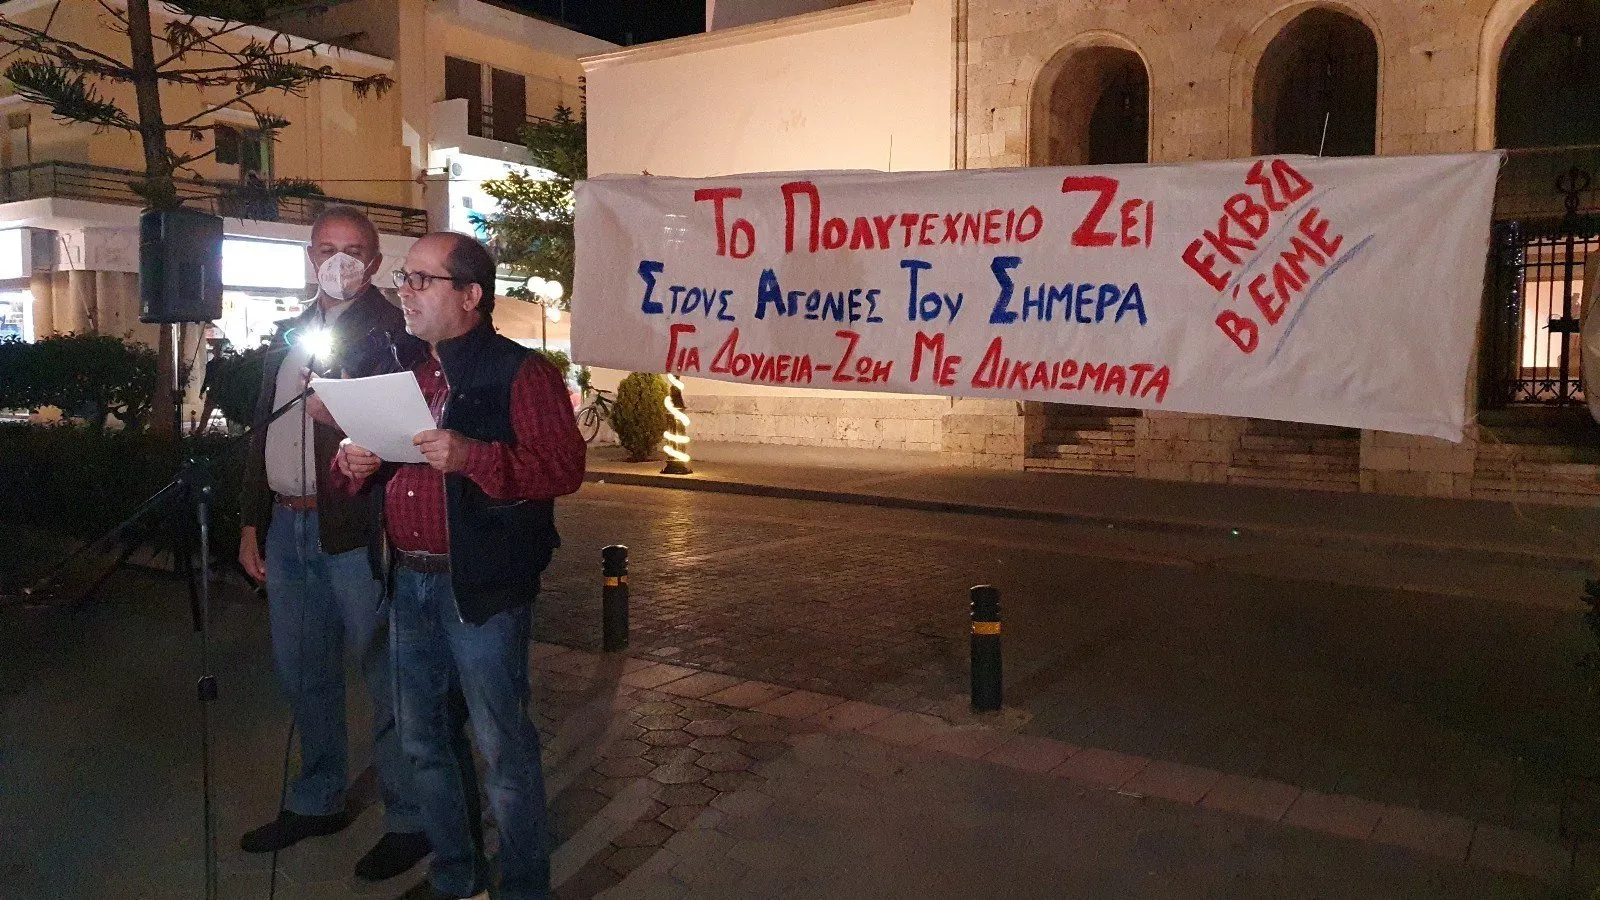 ΤΟ ΠΟΛΥΤΕΧΝΕΙΟ ΖΕΙ
ΣΤΟΥΣ ΑΓΩΝΕΣ ΤΟΥ ΣΗΜΕΡΑ
ΓΙΑ ΔΟΥΛΕΙΑ-ΖΩΗ ΜΕ ΔΙΚΑΙΩΜΑΤΑ
ΕΚΒΕΔ
Β΄ΕΛΜΕ